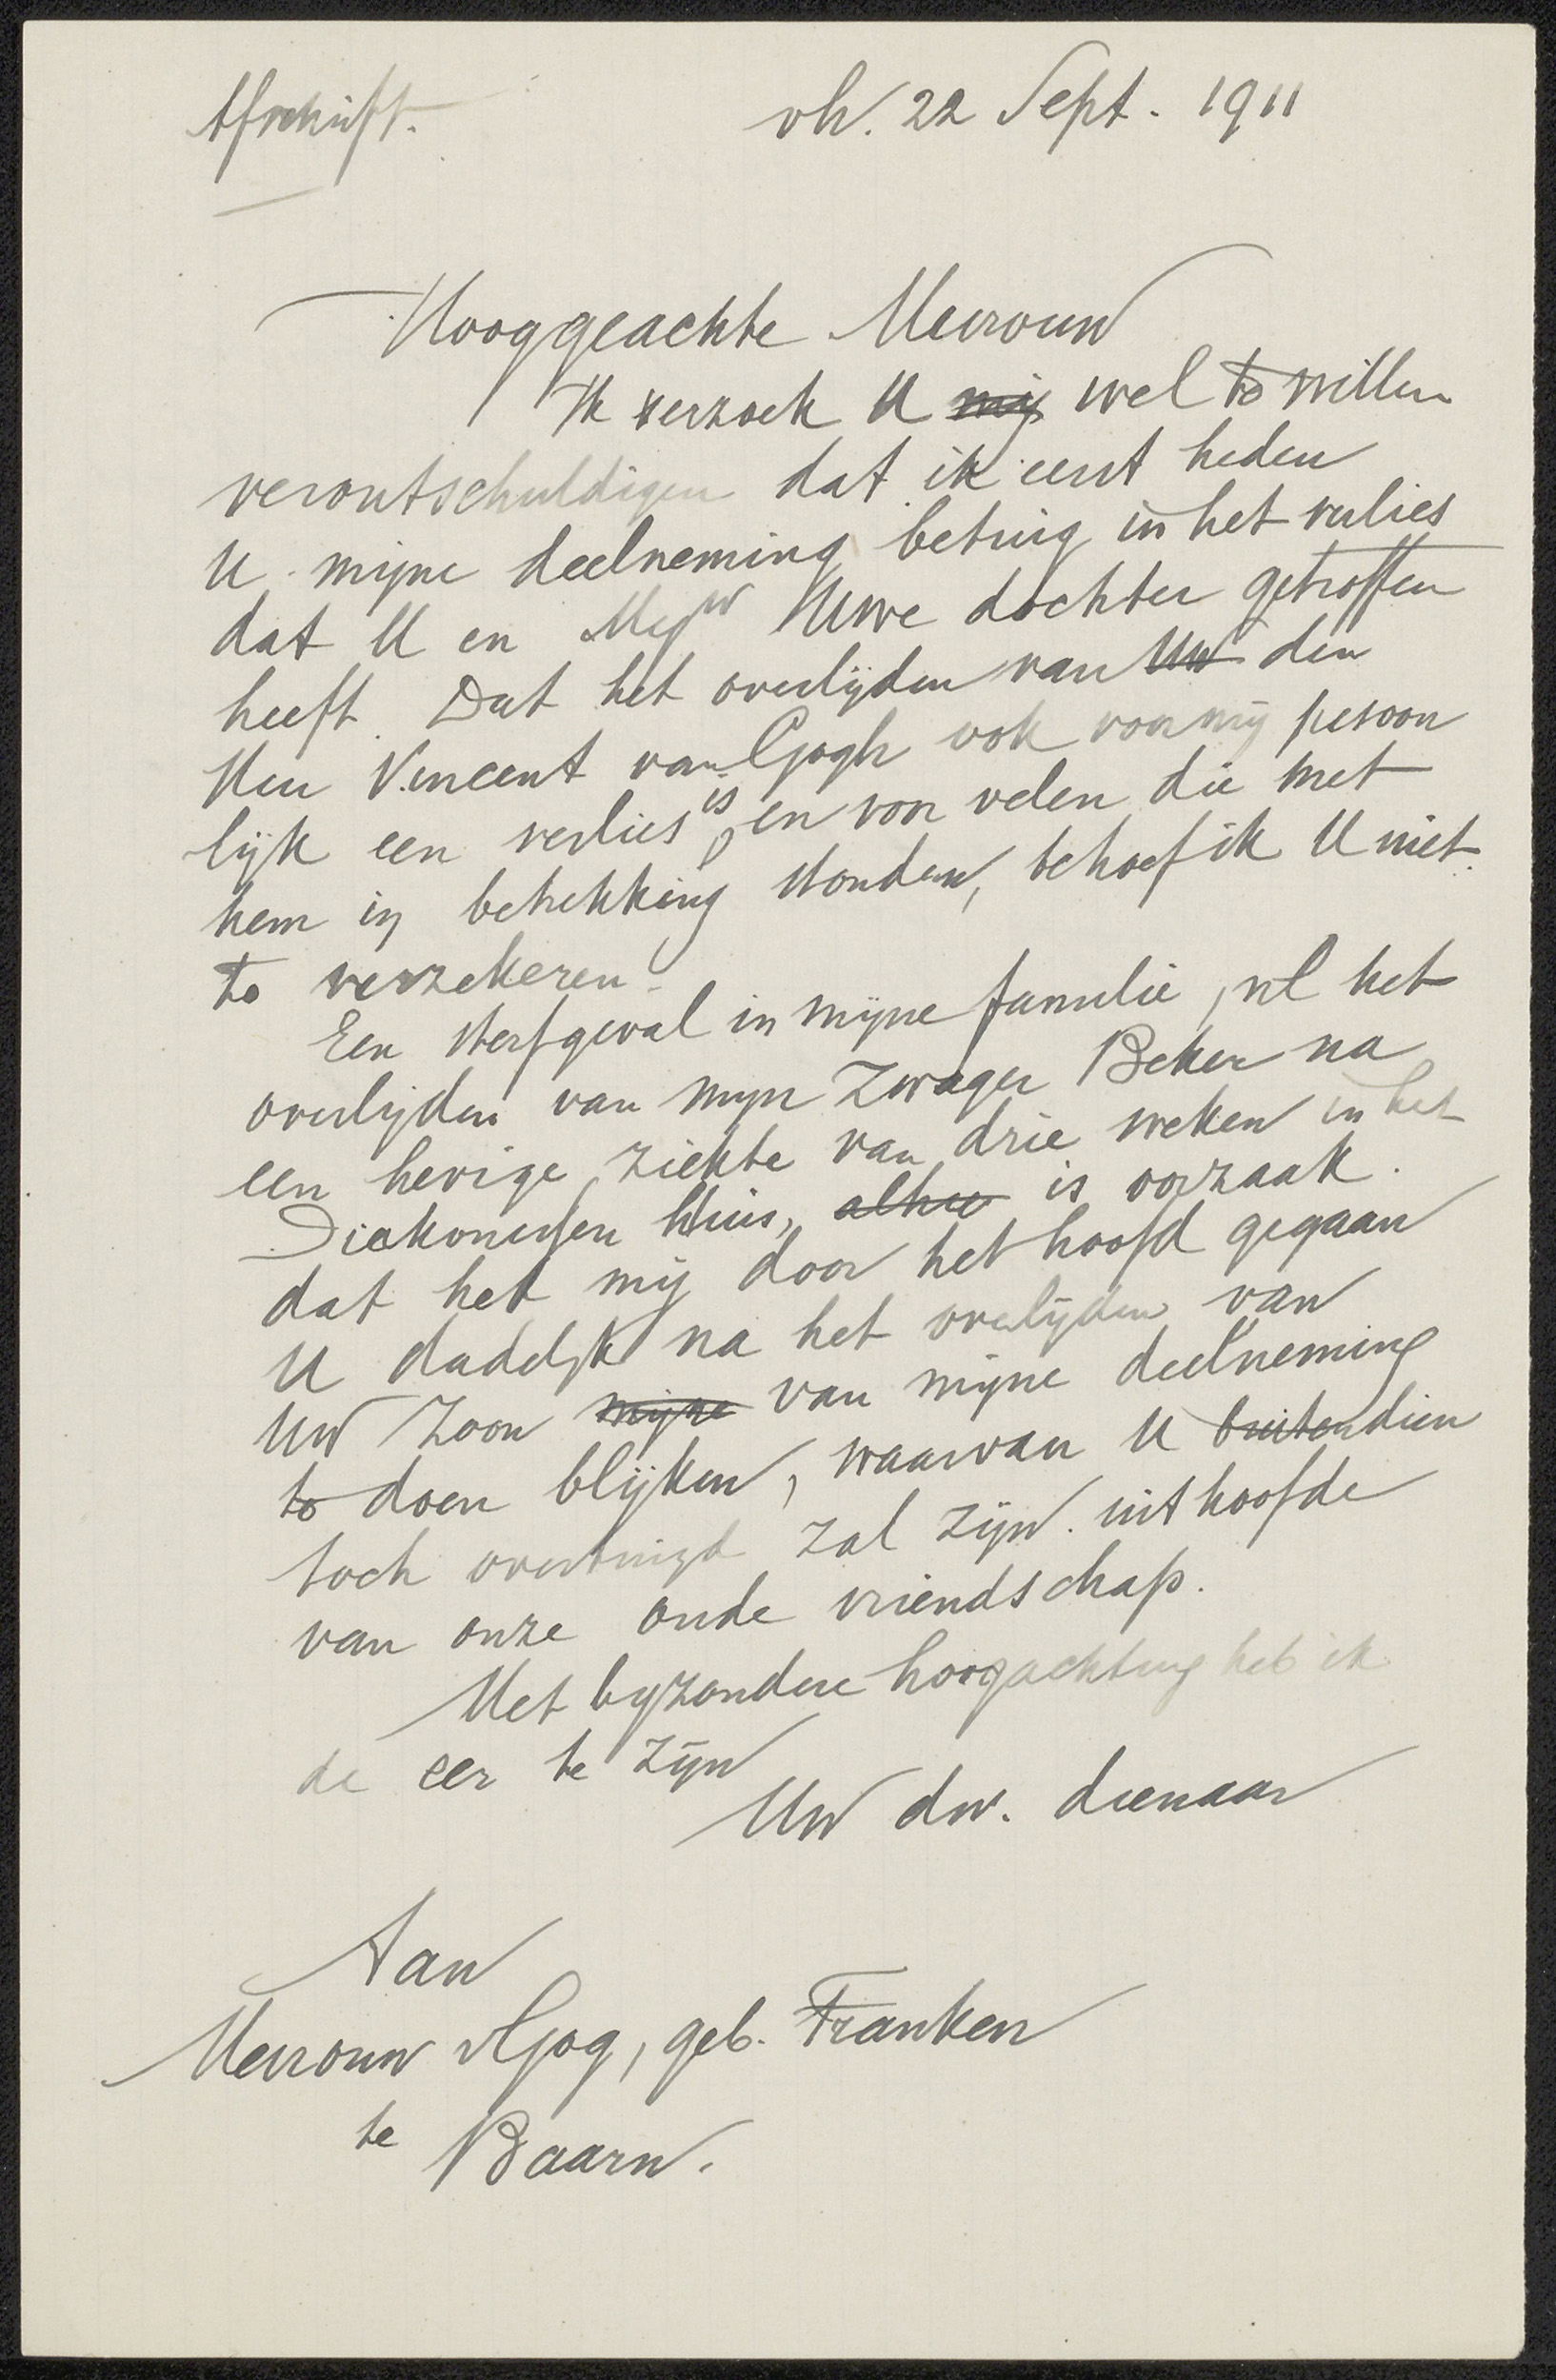 Afschrift.
vh. 22 Sept. 1911
Hooggeachte Mevrouw
Ik verzoek U mij wel te willen
verontschuldigen dat ik eerst heden
U mijne deelneming betuig in het verlies
dat U en Mejw Uwe dochter getroffen
heeft. Dat het overlijden van Uw den
Heer Vincent van Gogh ook voor mij persoon
lijk een verlies is, en voor velen die met
hem in betrekking stonden, behoef ik U niet
te verzekeren.
Een sterfgeval in mijne familie, nl het
overlijden van mijn Zwager Beker na
een hevige ziekte van drie weken in het
Diakonessen Huis, alhier is oorzaak
dat het mij door het hoofd gegaan
U dadelijk na het overlijden van
Uw Zoon mijne van mijne deelneming
te doen blijken, waarvan U buitendien
toch overtuigd zal zijn uit hoofde
van onze oude vriendschap.
Met byzondere hoogachting heb ik
de eer te zijn
Uw dw. dienaar
Aan
Mevrouw vGog, geb. Franken
te Baarn.